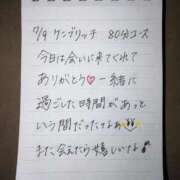 7/9 ケンブリッヂ 80分コース
今日は会いに来てくれて
ありがとう♡一緒に
過ごした時間があっと
いう間だったなぁ
また会えたら嬉しいな♪